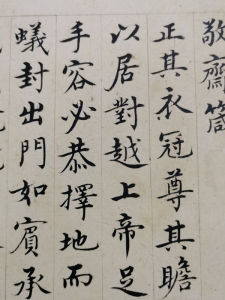 敬齋箴
正其衣冠尊其瞻
以居對越上帝足
手容必恭擇地而
蟻封出門如賓承